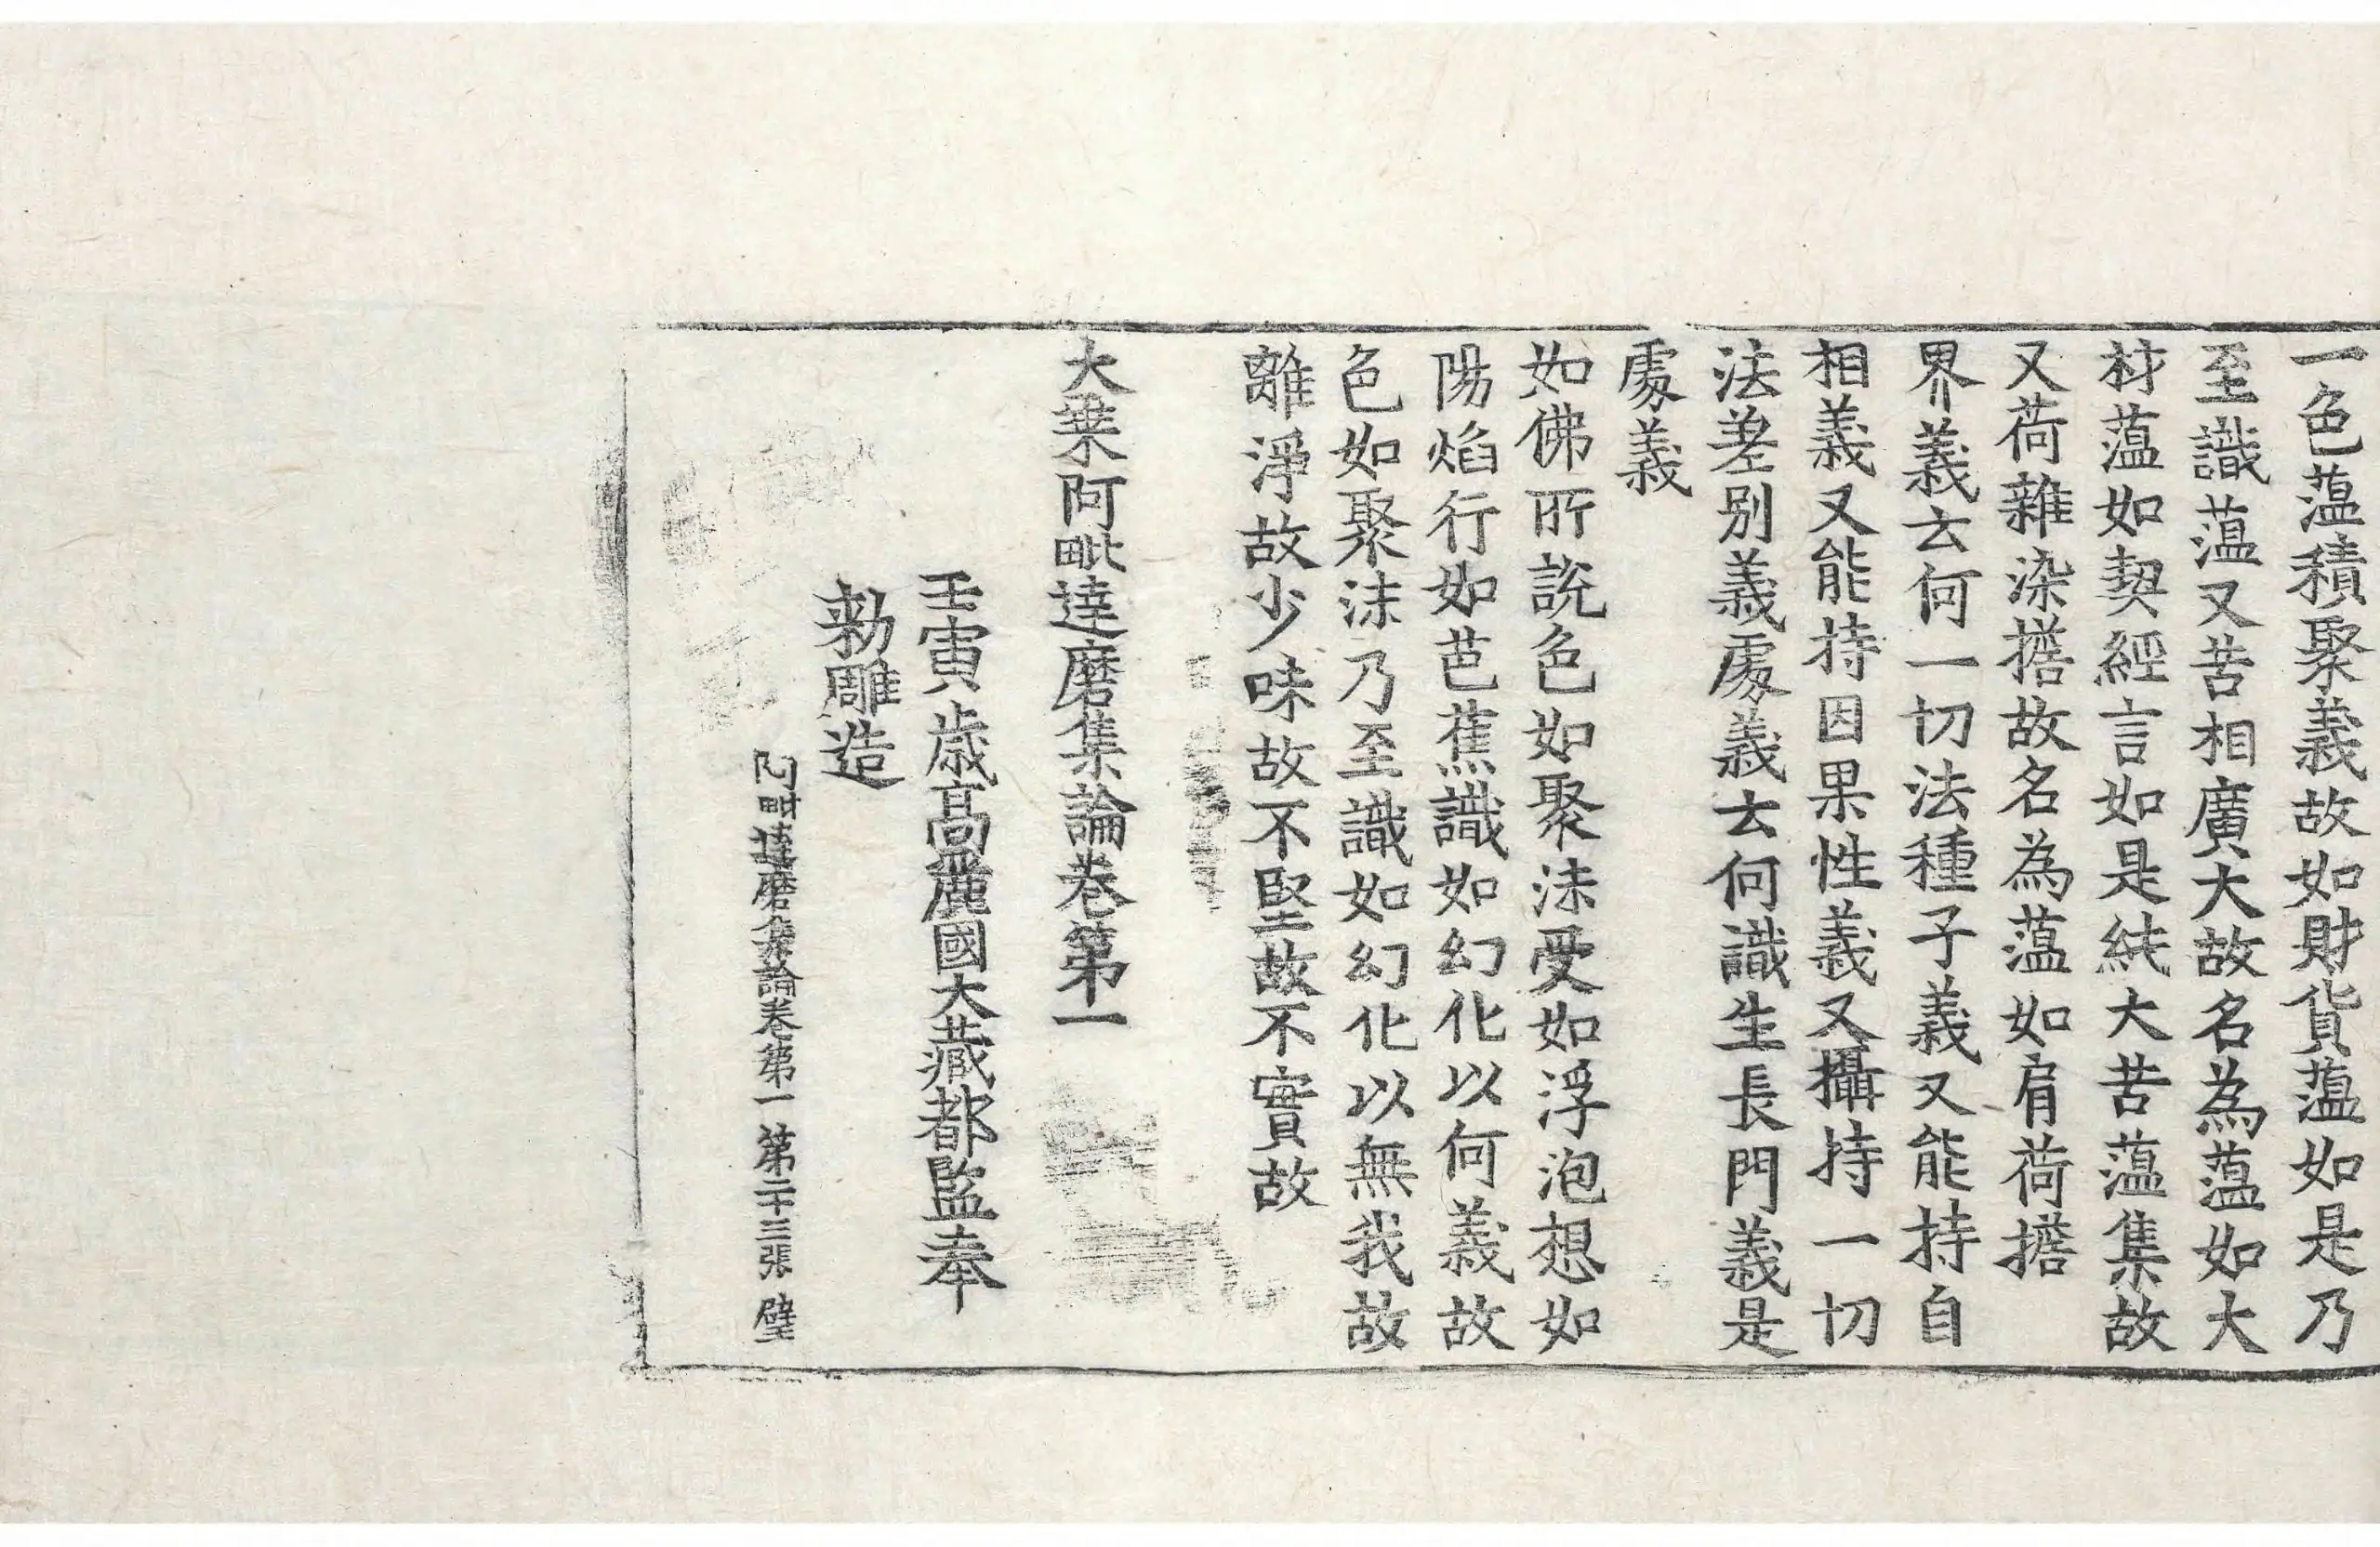 一色蕰積聚義故如財貨蕰如是乃
至識蕰又苦相廣大故名為蕰如大
材蕰如契經言如是純大苦蕰集故
又荷雜染擔故名為蕰如肩荷擔
界義云何一切法種子義又能持自
相義又能持因果性義又攝持一切
法差別義義處義云何識生長門義是
處義
如佛所說色如聚沫受如浮泡想如
陽焰行如芭蕉識如幻化以何義故
色如聚沫乃至識如幻化以無我故
離淨故少味故不堅故不實故
大乗阿毗達磨集論卷第一
壬寅歳高麗國大藏都監奉
勅雕造
阿毗達磨集論卷第一 第二十三張 壁